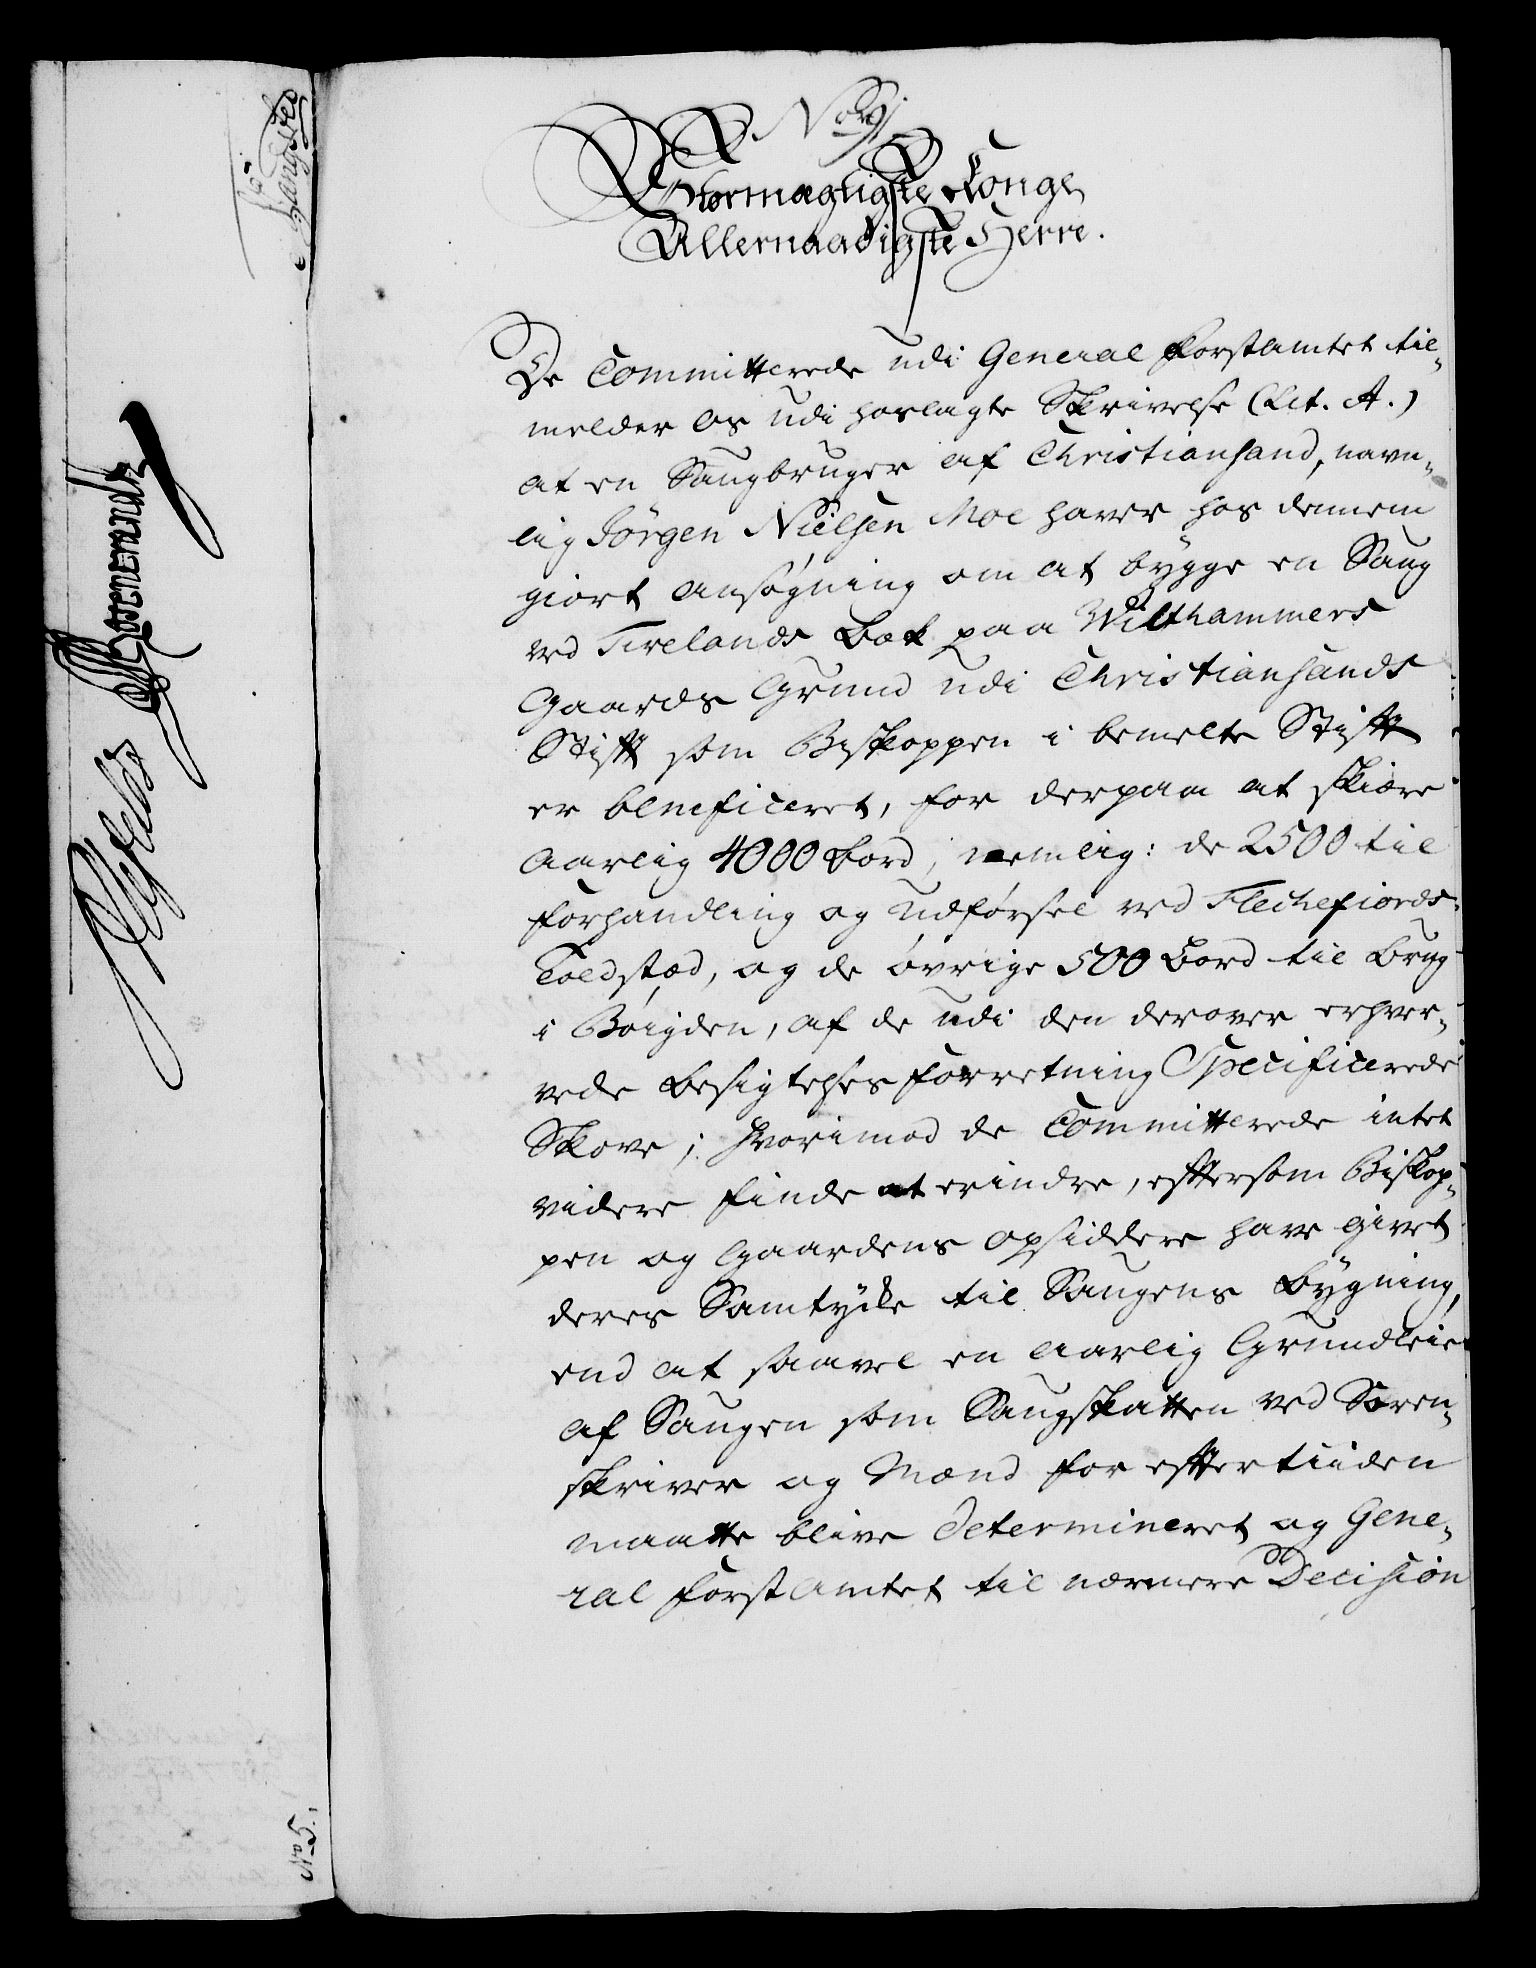 Norg.
Stormægtigste Konge
Allernaadigste Herre.
De Committerede udi General Forstamtet til-
melder os udi hoslagte Skrivelse (Lit. A.)
at en Saugbruger af Christiansand, navn-
lig Jörgen Nielsen Moe haver hos dennem
giort ansøgning om at bÿgge en Saug
ved Tirelands Bek paa Wilthammers
Gaards Grund udi Christiansands
Stift som Biskoppen i bemelte Stift
er beneficeret, for derpaa at skiære
aarlig 4000 Bord, nemlig: de 2500 til
forhandling og Udførsel ved Flechefiords
Toldstæd, og de øvrige 500 Bord til Brug
i Bøigden, af de udi den derover erhver-
vede Besigtelses Forretning Specificerede
Skove; hvorimod de Committerede intet
videre finde at erindre, eftersom Biskop-
pen og Gaardens Opsiddere have givet
deres Samtykke til Saugens Bÿgning,
end at saavel en aarlig Grundleie
af Saugen som Saugskatten ved Soren-
skriver og Mænd for eftertiiden
maatte blive determineret og Gene-
ral Forstamtet til nærmere Decision
Rosenerands
No 5.